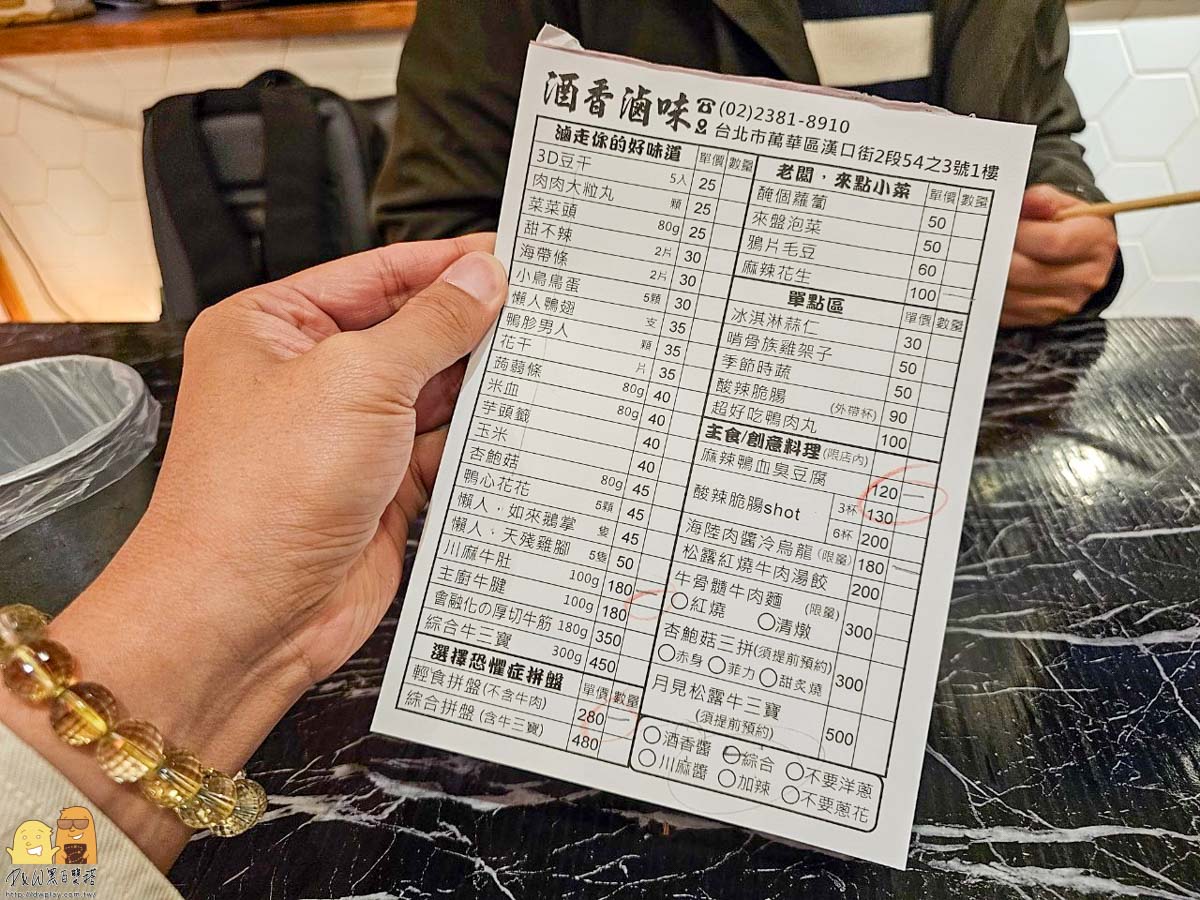 酒香滷味
(02)2381-8910
台北市萬華區漢口街2段54之3號1樓
滷走你的好味道 單價 數量
3D豆干 5入 25
肉肉大粒丸 顆 25
菜菜頭 80g 25
甜不辣 2片 30
海帶條 2片 30
小鳥鳥蛋 5顆 35
懶人鴨翅 支 35
鴨胗男人 顆 35
花干 片 40
蒟蒻條 80g 40
米血 80g 40
芋頭籤 40
玉米 45
杏鮑菇 80g 45
鴨心花花 5顆 45
懶人．如來鵝掌 隻 50
懶人．天殘雞腳 5隻 180
川麻牛肚 100g 180
主廚牛腱 100g 350
會融化の厚切牛筋 180g 450
綜合牛三寶 300g
選擇恐懼症拼盤 單價 數量
輕食拼盤(不含牛肉) 280
綜合拼盤(含牛三寶) 480
老闆，來點小菜 單價 數量
醃個蘿蔔 50
來盤泡菜 50
鴉片毛豆 60
麻辣花生 100
單點區 單價 數量
冰淇淋蒜仁 30
啃骨族雞架子 50
季節時蔬 50
酸辣脆腸 (外帶杯) 90
超好吃鴨肉丸 100
主食/創意料理(限店內)
麻辣鴨血臭豆腐 120
酸辣脆腸shot 3杯 130
6杯 200
海陸肉醬冷烏龍(限量) 180
松露紅燒牛肉湯餃 200
牛骨髓牛肉麵 (限量) 300
紅燒 清燉
杏鮑菇三拼(須提前預約) 300
赤身 菲力 甜炙燒
月見松露牛三寶 500
(須提前預約)
酒香醬 綜合 不要洋蔥
川麻醬 加辣 不要蔥花
P&W黑白雙搭
http://dwplay.com.tw/